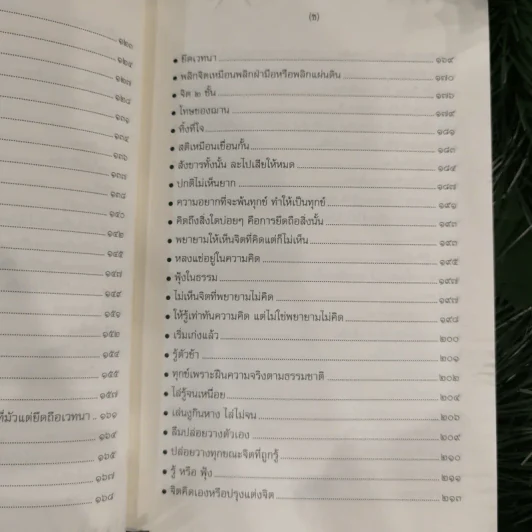 ๑๒๓
๑๒๕
๑๒๗
๑๒๘
๑๓๑
๑๓๕
๑๓๖
๑๓๗
๑๓๘
๑๔๐
๑๔๒
๑๔๕
๑๔๗
๑๔๙
๑๕๑
๑๕๒
๑๕๔
๑๕๕
๑๕๗
ที่มัวแต่ยึดถือเวทนา .. ๑๖๑
๑๖๔
๑๖๕
๑๖๗
๑๖๘
(ซ)
• ยึดเวทนา ๑๖๙
• พลิกจิตเหมือนพลิกฝ่ามือหรือพลิกแผ่นดิน ๑๗๐
• จิต ๒ ชั้น ๑๗๖
• โทษของฌาน ๑๗๙
• ทิ้งที่ใจ ๑๘๑
• สติเหมือนเขื่อนกั้น ๑๘๓
• สังขารทั้งนั้น ละไปเสียให้หมด ๑๘๕
• ปกติไม่เห็นยาก ๑๘๗
• ความอยากที่จะพ้นทุกข์ ทำให้เป็นทุกข์ ๑๙๑
• คิดถึงสิ่งใดบ่อยๆ คือการยึดถือสิ่งนั้น ๑๙๓
• พยายามให้เห็นจิตที่คิดแต่ก็ไม่เห็น ๑๙๓
• หลงแช่อยู่ในความคิด ๑๙๕
• ฟุ้งในธรรม ๑๙๗
• ไม่เห็นจิตที่พยายามไม่คิด ๑๙๗
• ให้รู้เท่าทันความคิด แต่ไม่ใช่พยายามไม่คิด ๑๙๘
• เริ่มเก่งแล้ว ๒๐๐
• รู้ตัวช้า ๒๐๑
• ทุกข์เพราะฝืนความจริงตามธรรมชาติ ๒๐๒
• ไล่รู้จนเหนื่อย ๒๐๔
• เล่นงูกินหาง ไล่ไม่จน ๒๐๖
• ลืมปล่อยวางตัวเอง ๒๐๙
• ปล่อยวางทุกขณะจิตที่ถูกรู้ ๒๑๐
• รู้ หรือ ฟุ้ง ๒๑๑
• จิตคิดเองหรือปรุงแต่งจิต ๒๑๓